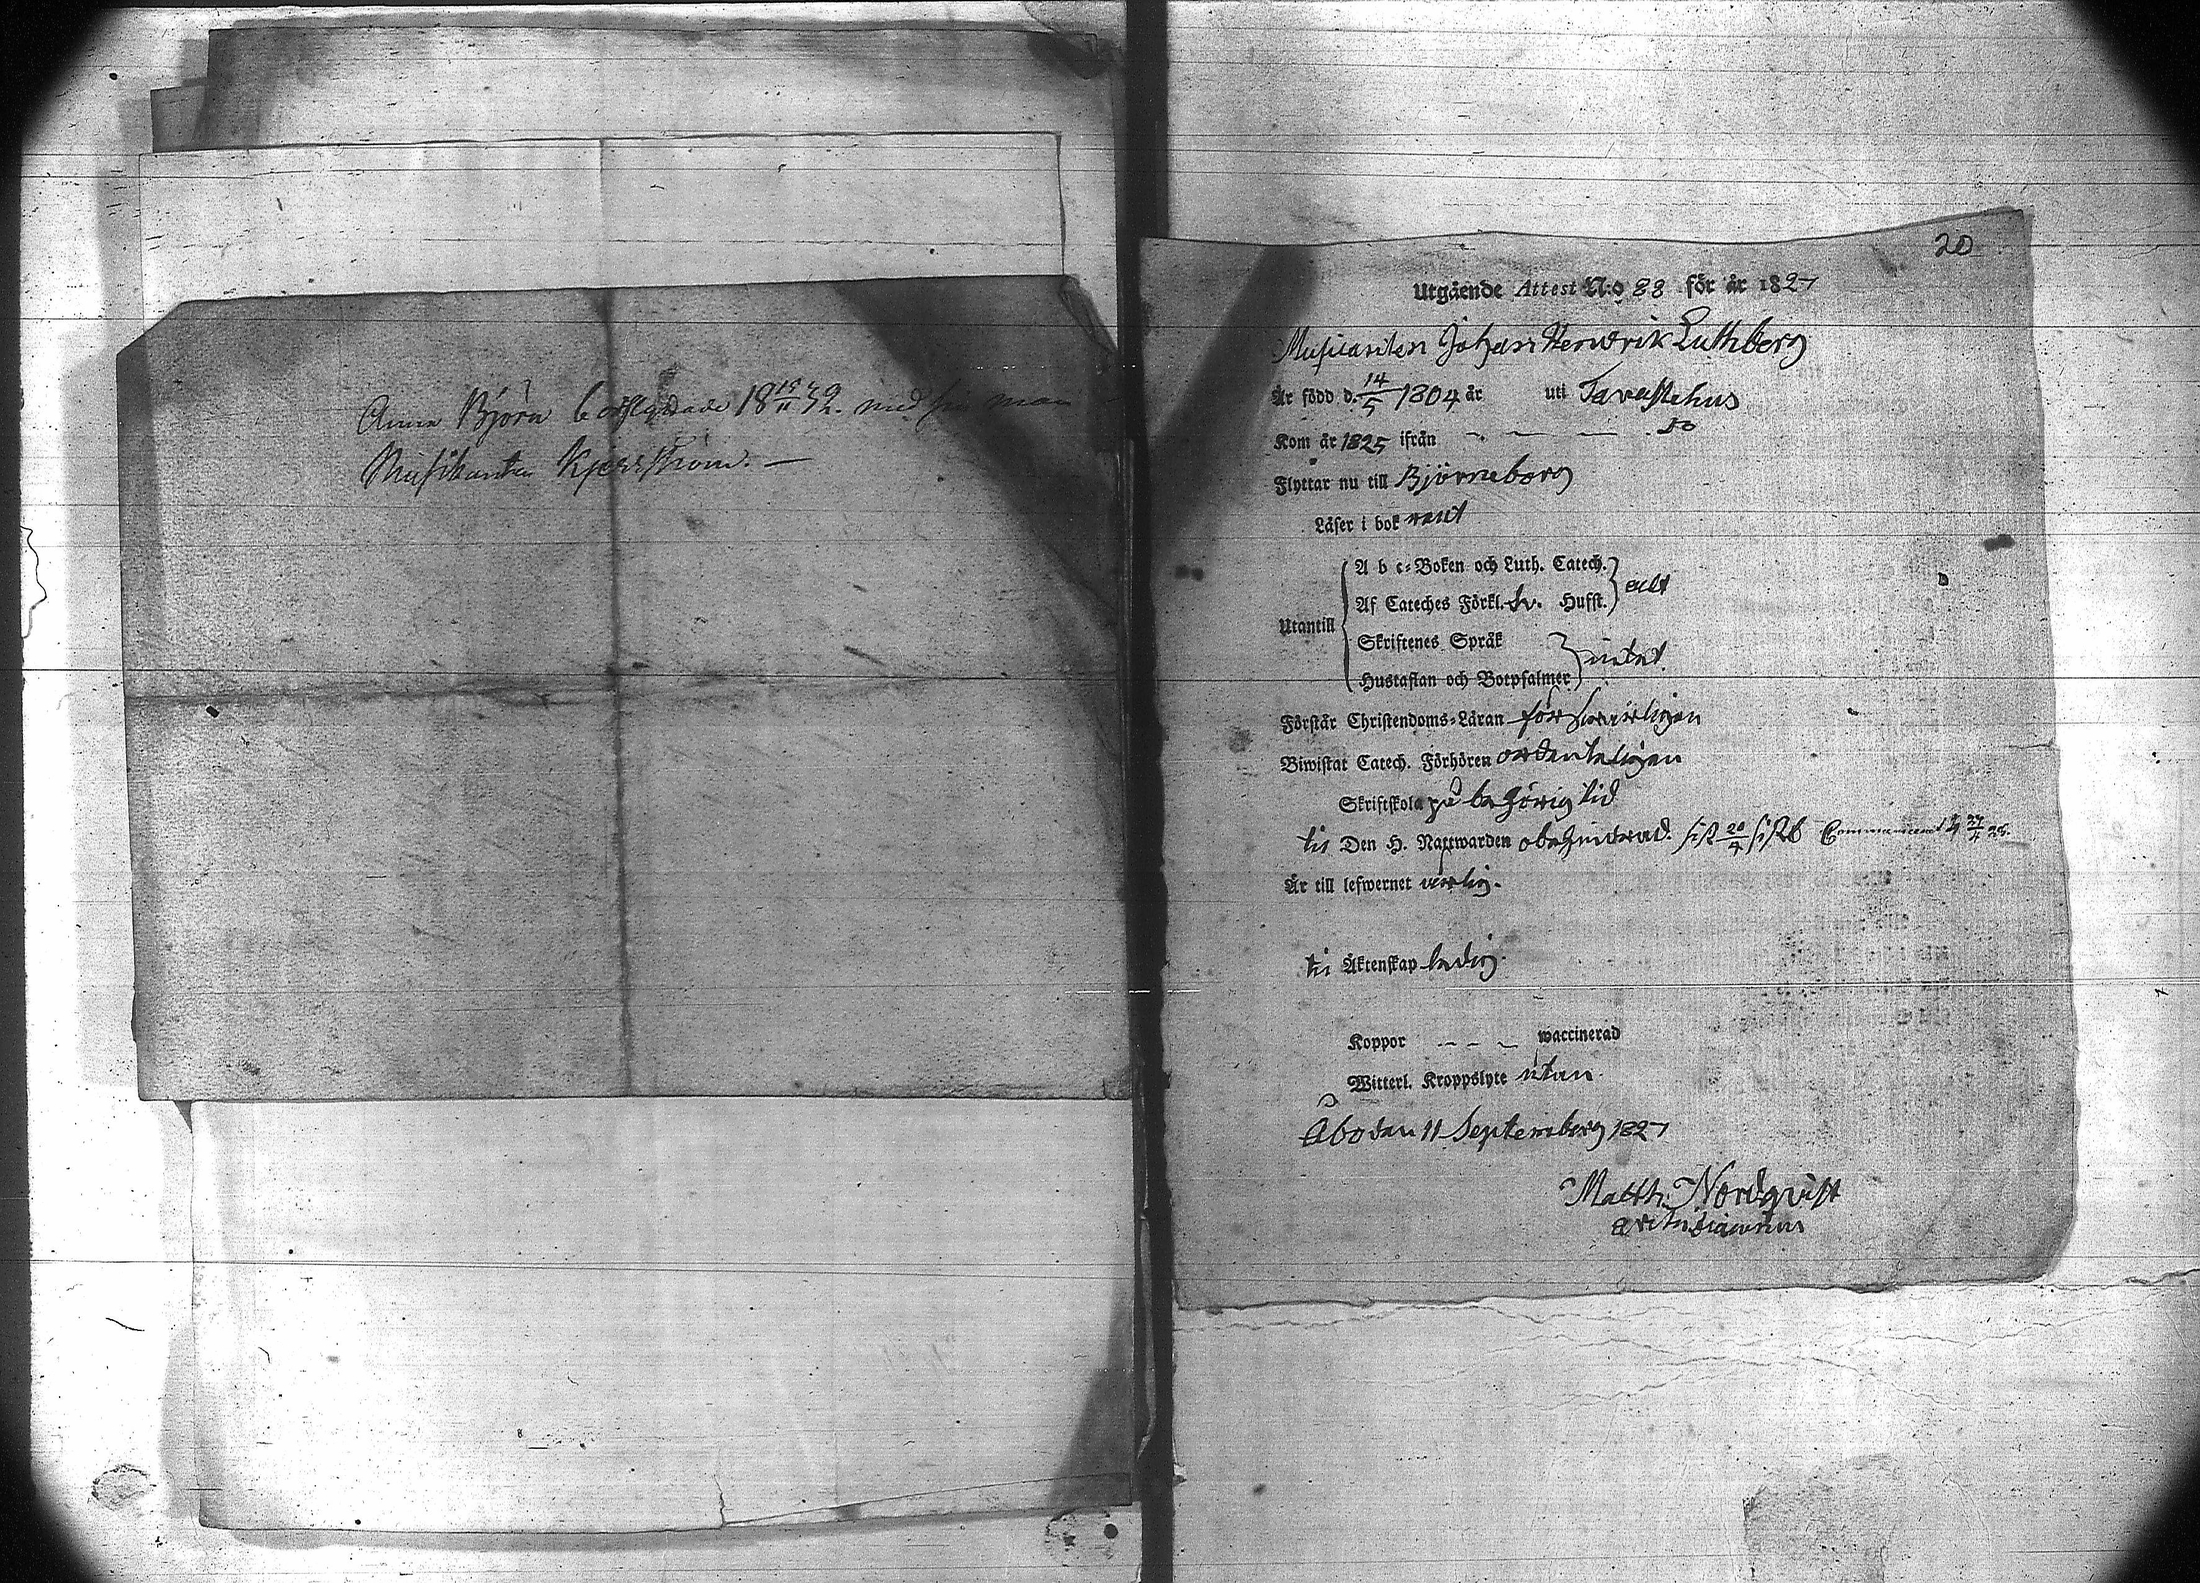 Anna Björn bortflyttade 18 19/11 32. med sin man
Musikanten Kjerrström. —
20
Utgående Attest N:o 88 för år 1827
Musicanten Johan Hendrik Luthberg
Är född d. 14/5 1804 år uti Tavastehus
Kom år 1825 ifrån — — — do
Flyttar nu till Björneborg
Läser i bok rent
Utantill
A b c-Boken och Luth. Catech.
Af Cateches Förkl. Sv. Husst. allt
Skriftenes Språk
Hustaflan och Botpsalmer intet.
Förstår Christendoms-Läran försvarligen
Biwistat Catech. Förhören ordenteligen
Skriftskola på behörig tid
til Den H. Nattwarden obehindrad. sist 20/4 sistl
Är till lefwernet ärlig.
til Äktenskap ledig.
Koppor - - - waccinerad
Witterl. Kroppslyte utan.
Åbo den 11 September 1827
Matth. Nordqvist